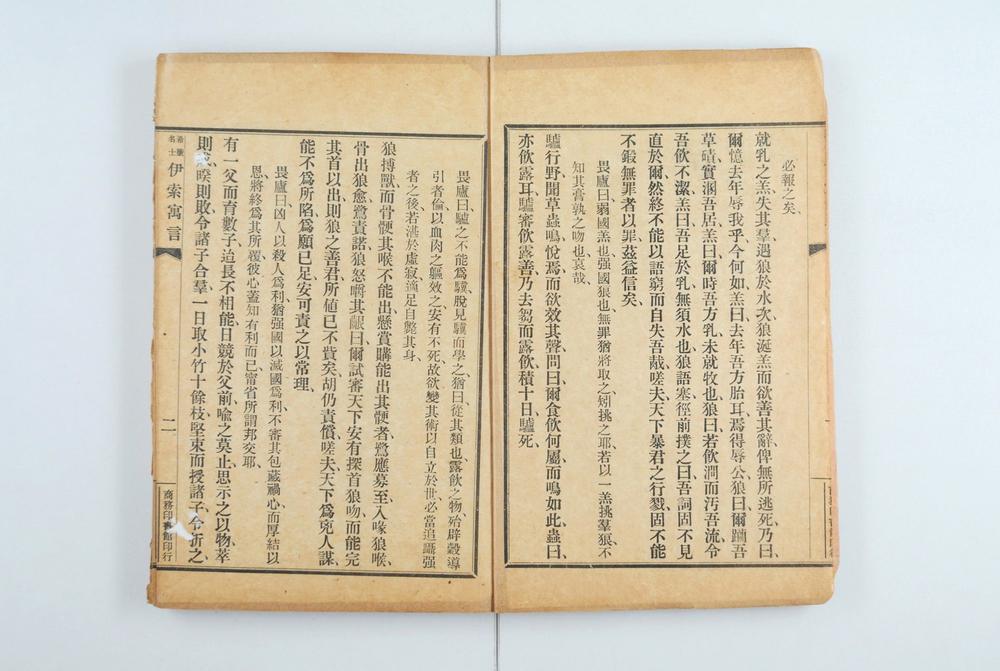 必報之矣、
就乳之羔失其羣、遇狼於水次、狼涎羔而欲善其辭、俾無所逃死、乃曰、
爾憶去年辱我乎、今何如、羔曰、去年吾方胎耳、焉得辱公、狼曰、爾躪吾
草磧、實溷吾居、羔曰、爾時吾方乳、未就牧也、狼曰、若飲澗而汚吾流、令
吾飲不潔、羔曰、吾足於乳、無須水也、狼語塞、徑前撲之曰、吾詞固不見
直於爾、然終不能以語窮而自失吾胾、嗟夫、天下暴君之行戮、固不能
不鍛無罪者以罪、茲益信矣、
畏廬曰、弱國羔也、强國狼也、無罪猶將取之、矧挑之耶、若以一羔挑羣狼、不
知其膏孰之吻也、哀哉、
驢行野、聞草蟲鳴、悅焉、而欲效其聲、問曰、爾食飲何屬、而鳴如此、蟲曰、
亦飲露耳、驢審飲露善、乃去芻而露飲、積十日、驢死、
畏廬曰、驢之不能爲驥、脫見驥而學之、猶曰從其類也、露飲之物、殆辟穀導
引者倫、以血肉之軀效之、安有不死、故欲變其術以自立於世、必當追躡强
者之後、若湛於虛寂、適足自斃其身、
狼搏獸而骨鯁其喉、不能出、懸賞購能出其鯁者、鷺應募至、入喙狼喉、
骨出、狼愈、鷺責諾、狼怒嚼其齦曰、爾試審天下安有探首狼吻、而能完
其首以出、則狼之善君、所値已不貲矣、胡仍責償、嗟夫、天下爲兇人謀、
能不爲所陷、爲願已足、安可責之以常理、
畏廬曰、凶人以殺人爲利、猶强國以滅國爲利、不審其包藏禍心、而厚結以
恩、將終爲其所覆、彼心蓋知有利而已、甯省所謂邦交耶、
有一父而育數子、迨長不相能、日競於父前、喻之莫止、思示之以物、萃
則 、暌則敗、令諸子合羣、一日取小竹十餘枝、堅束而授諸子、令折之、
希臘名士 伊索寓言
二
商務印書館印行